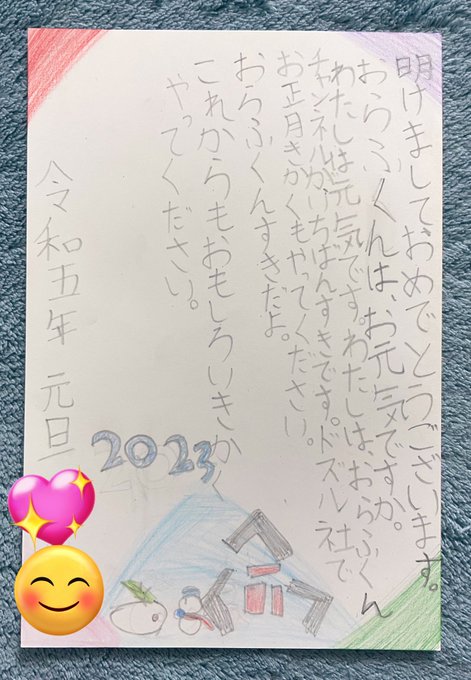 明けましておめでとうございます。
おらふくんは、お元気ですか。
わたしは元気です。わたしは、おらふくん
チャンネルがいちばんすきです。ドズル社で
お正月きかくもやってください。
おらふくんすきだよ。
これからもおもしろいきかく
やってください。
令和五年 元旦
2023